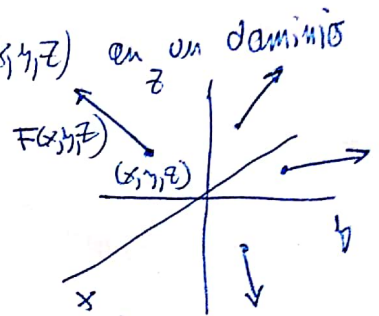 x,y,z) en un dominio
z
F(x,y,z)
(x,y,z)
y
x